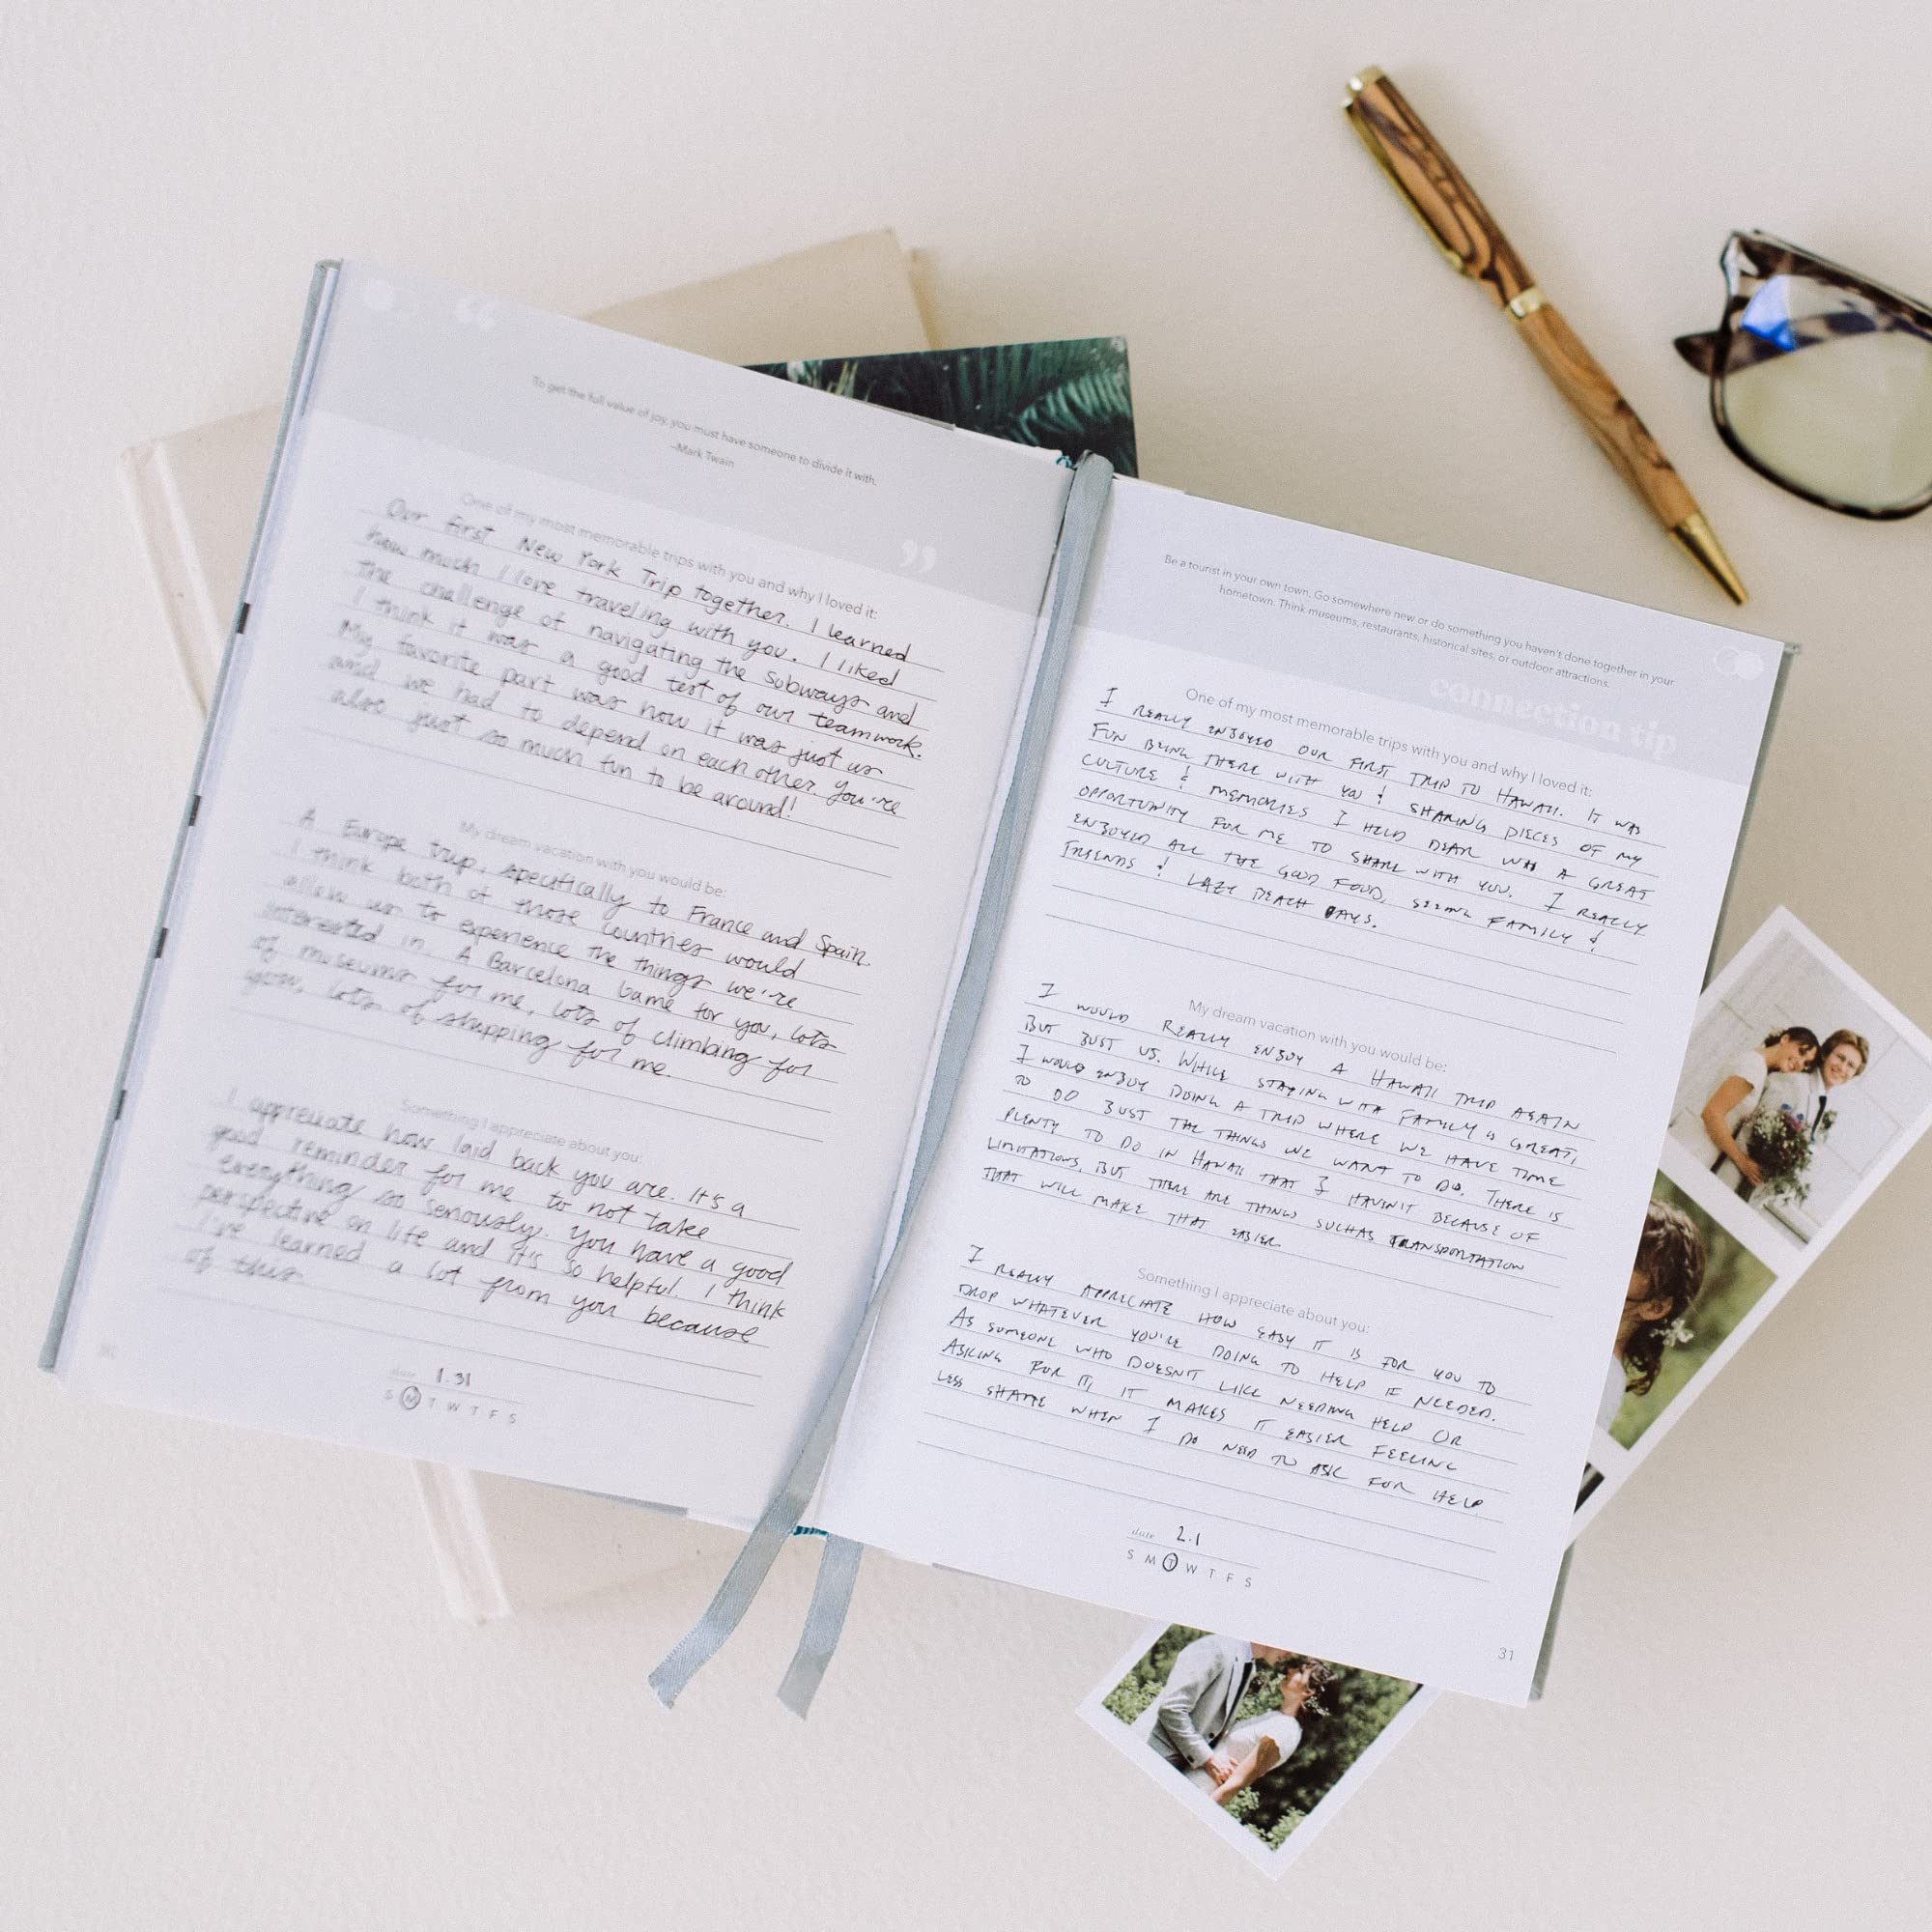 “
To get the full value of joy, you must have someone to divide it with.
–Mark Twain
”
One of my most memorable trips with you and why I loved it:
Our first New York Trip together. I learned
how much I love traveling with you. I liked
the challenge of navigating the subways and
I think it was a good test of our teamwork.
My favorite part was how it was just us
and we had to depend on each other. You're
also just so much fun to be around!
My dream vacation with you would be:
A Europe trip, specifically to France and Spain.
I think both of those countries would
allow us to experience the things we're
interested in. A Barcelona game for you, lots
of museums for me, lots of climbing for
you, lots of shopping for me.
Something I appreciate about you:
I appreciate how laid back you are. It's a
good reminder for me to not take
everything so seriously. You have a good
perspective on life and it's so helpful. I think
I've learned a lot from you because
of this.
date 1.31
S M T W T F S
Be a tourist in your own town. Go somewhere new or do something you haven't done together in your
hometown. Think museums, restaurants, historical sites, or outdoor attractions.
connection tip
One of my most memorable trips with you and why I loved it:
I REALLY ENJOYED OUR FIRST TRIP TO HAWAII. IT WAS
FUN BEING THERE WITH YOU & SHARING PIECES OF MY
CULTURE & MEMORIES I HELD DEAR WAS A GREAT
OPPORTUNITY FOR ME TO SHARE WITH YOU. I REALLY
ENJOYED ALL THE GOOD FOOD, SEEING FAMILY &
FRIENDS & LAZY BEACH DAYS.
My dream vacation with you would be:
I WOULD REALLY ENJOY A HAWAII TRIP AGAIN
BUT JUST US. WHILE STAYING WITH FAMILY IS GREAT,
I WOULD ENJOY DOING A TRIP WHERE WE HAVE TIME
TO DO JUST THE THINGS WE WANT TO DO. THERE IS
PLENTY TO DO IN HAWAII THAT I HAVEN'T BECAUSE OF
LIMITATIONS, BUT THERE ARE THINGS SUCH AS TRANSPORTATION
THAT WILL MAKE THAT EASIER
Something I appreciate about you:
I REALLY APPRECIATE HOW EASY IT IS FOR YOU TO
DROP WHATEVER YOU'RE DOING TO HELP IF NEEDED.
AS SOMEONE WHO DOESN'T LIKE NEEDING HELP OR
ASKING FOR IT, IT MAKES IT EASIER FEELING
LESS SHAME WHEN I DO NEED TO ASK FOR HELP.
date 2.1
S M T W T F S
31